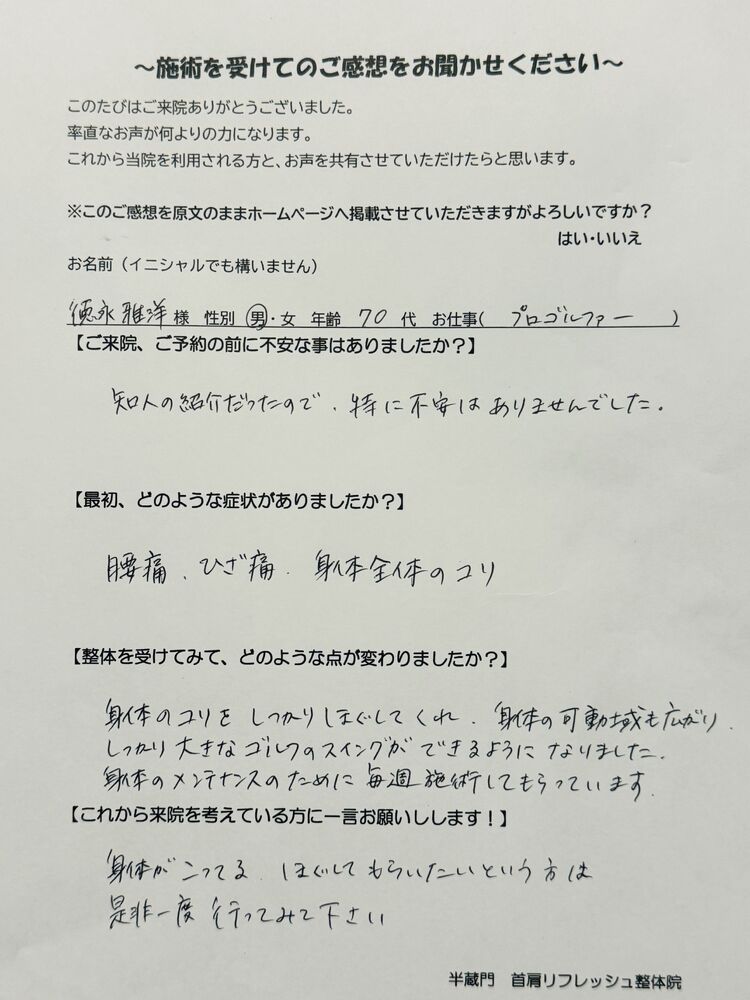 ～施術を受けてのご感想をお聞かせください～
このたびはご来院ありがとうございました。
率直なお声が何よりの力になります。
これから当院を利用される方と、お声を共有させていただけたらと思います。
※このご感想を原文のままホームページへ掲載させていただきますがよろしいですか？
はい・いいえ
お名前（イニシャルでも構いません）
徳永雅洋 様 性別 男・女 年齢 70 代 お仕事( プロゴルファー )
【ご来院、ご予約の前に不安な事はありましたか？】
知人の紹介だったので、特に不安はありませんでした。
【最初、どのような症状がありましたか？】
腰痛、ひざ痛、身体全体のコリ
【整体を受けてみて、どのような点が変わりましたか？】
身体のコリをしっかりほぐしてくれ、身体の可動域も広がり、
しっかり大きなゴルフのスイングができるようになりました。
身体のメンテナンスのために毎週施術してもらっています。
【これから来院を考えている方に一言お願いしします！】
身体がこってる、ほぐしてもらいたいという方は
是非一度行ってみて下さい
半蔵門 首肩リフレッシュ整体院